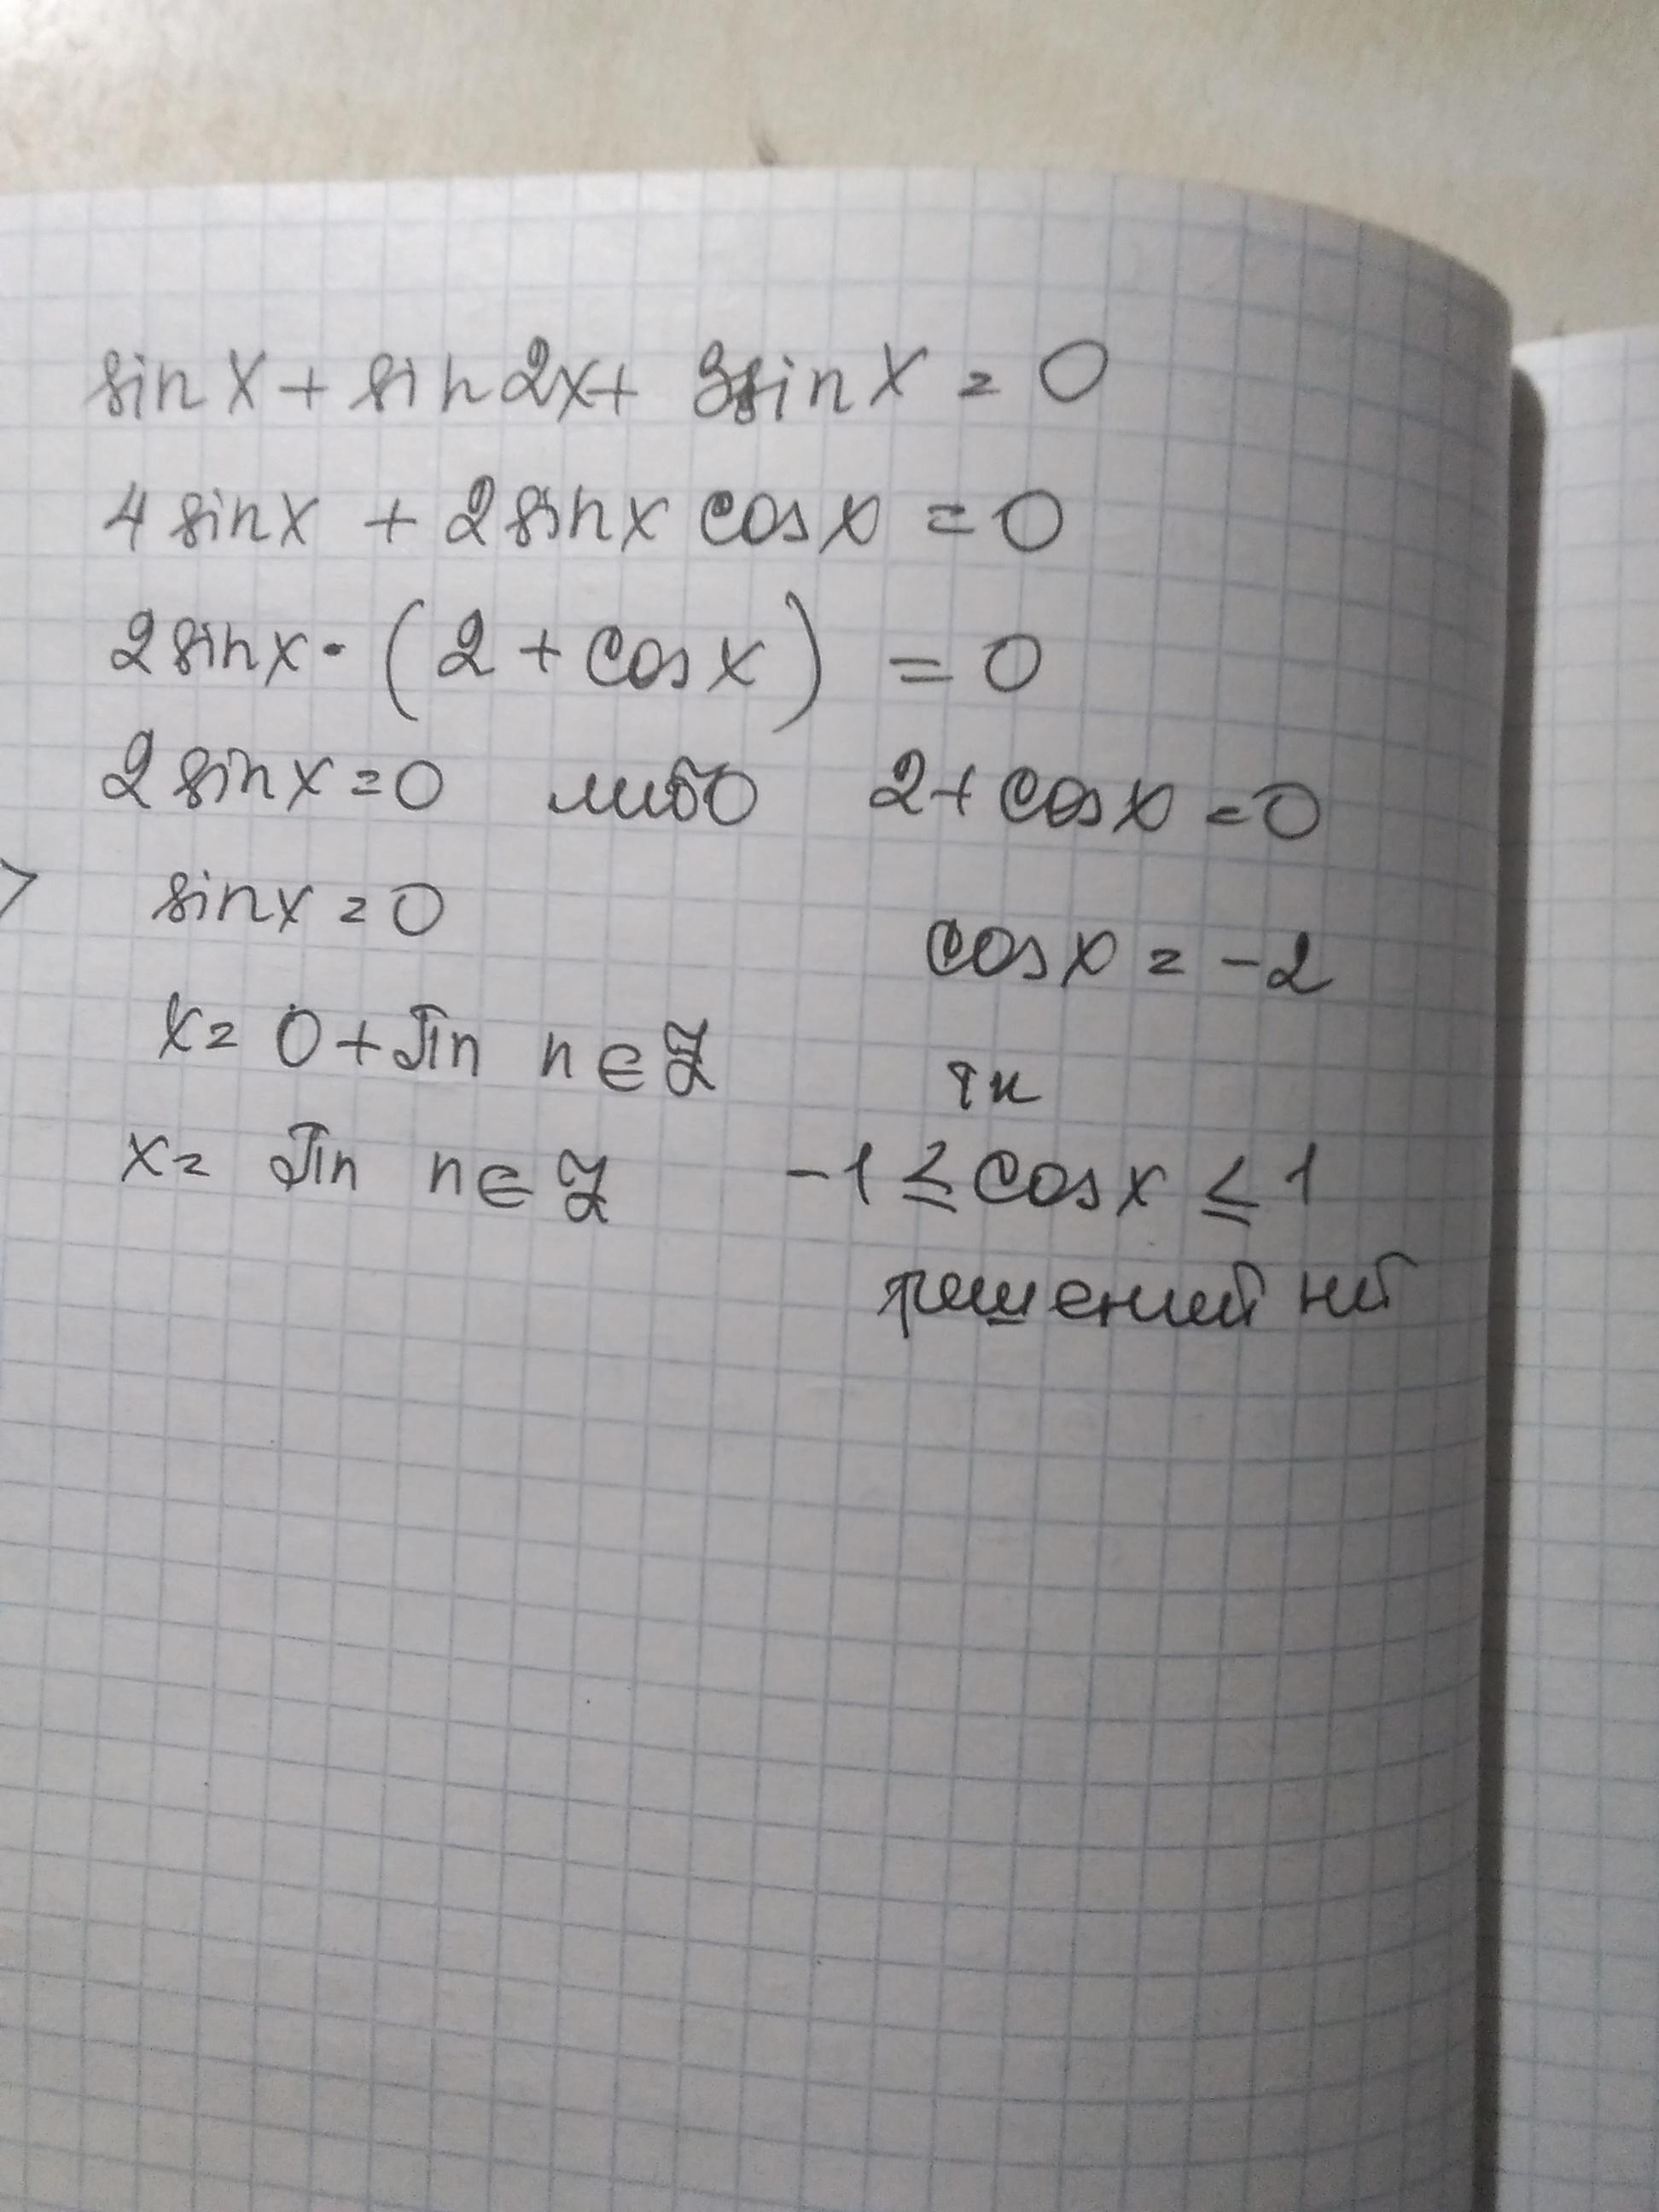 sin x + sin 2x + 3sin x = 0
4 sin x + 2 sin x cos x = 0
2 sin x · (2 + cos x) = 0
2 sin x = 0 либо 2 + cos x = 0
sin x = 0
cos x = -2
x = 0 + πn n ∈ Z
тк
x = πn n ∈ Z -1 ≤ cos x ≤ 1
решений нет